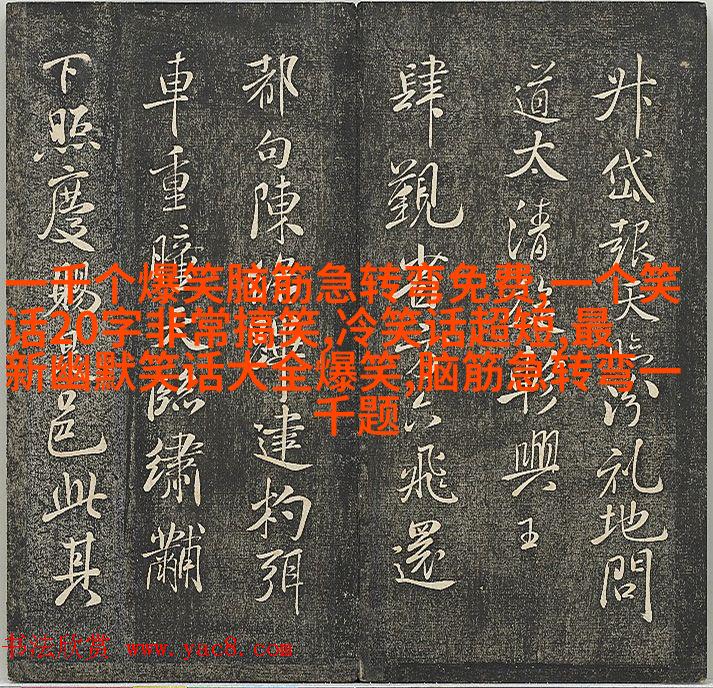 升岱報天臨汾礼地問
道太清彰興王
肆覲省六飛還
都句陳建杓弭
車重瞳臨繡黼
下照慶賜邑此其
一千个爆笑脑筋急转弯免费,一个笑
话20字非常搞笑,冷笑话超短,最
新幽默笑话大全爆笑,脑筋急转弯一
千题
书法欣赏 www.yac8.com